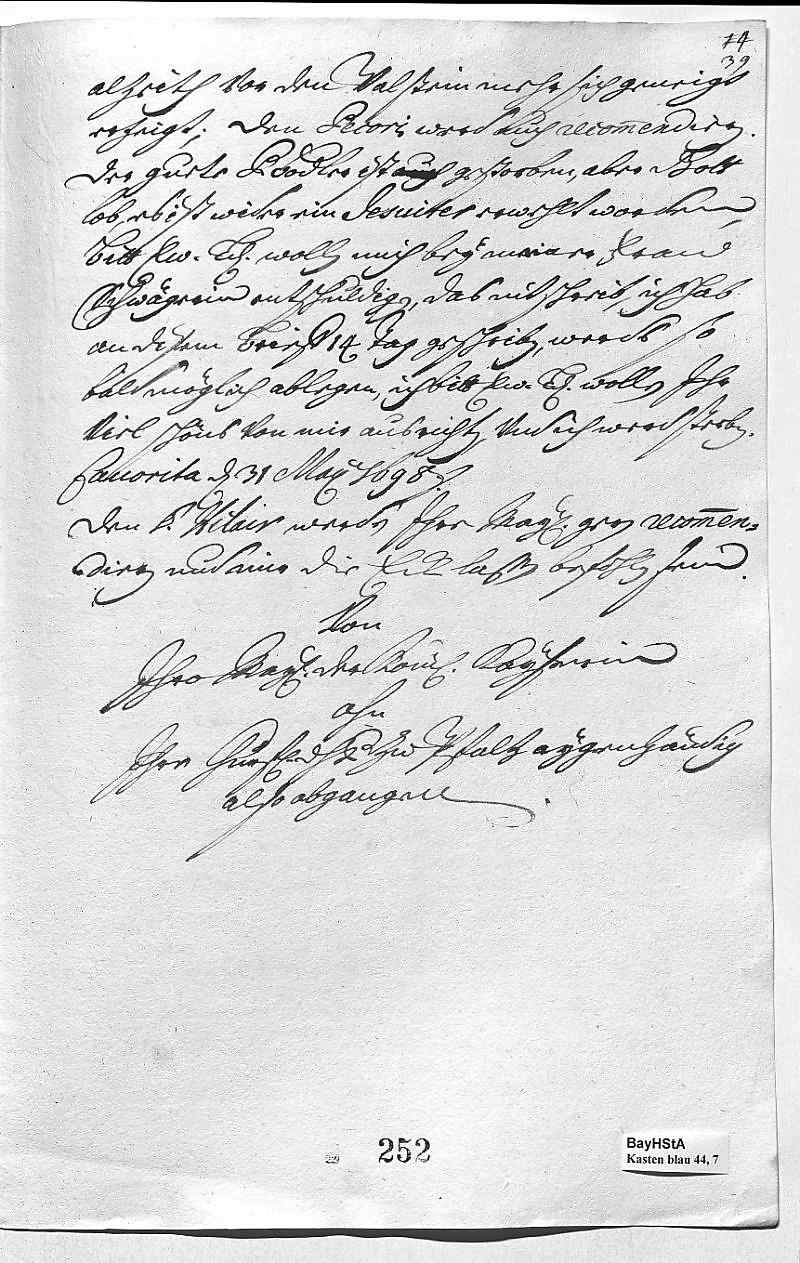 14
39
alzeith von den Valstein mehr sich geneigt
erzeigt; den Pecori werd auch recom̄endiren.
der guete Pater ist auch gestorben, aber Gott
lob, es ist wider ein Jesuiter erwehlt worden,
bitt Ew. Ld. wollen mich bey meiner Frau
Schwägerin entschuldigen, das nit schreib, ich hab
an disem brieff 14 Tag geschriben, werde so
balt möglich ablegen, ich bitt Ew. Ld. wollen Ihr
viel schöns von mir ausrichten und ich werd sterben.
Fauorita d. 31 May 1698.
den P. Hilair werde Ihro May. gern recom̄en=
diren und mir die lassen befohlen sein.
Von
Ihro May. der Röm. Kayserin
ahn
Ihre Churfl. dht zu Pfaltz aygenhändig
also abgangen.
252
BayHStA
Kasten blau 44, 7